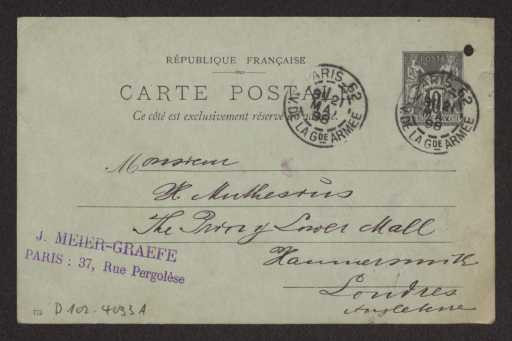 RÉPUBLIQUE FRANÇAISE
CARTE POSTALE
Ce côté est exclusivement réservé à l'adresse.
PARIS_62
AV. DE LA Gde ARMÉE
PARIS_62
AV. DE LA Gde ARMÉE
Monsieur
H Muthesius
The Priory Lower Mall
Hammersmith
Londres
Angleterre
J. MEIER-GRAEFE
PARIS : 37, Rue Pergolèse
D 102-4093 A